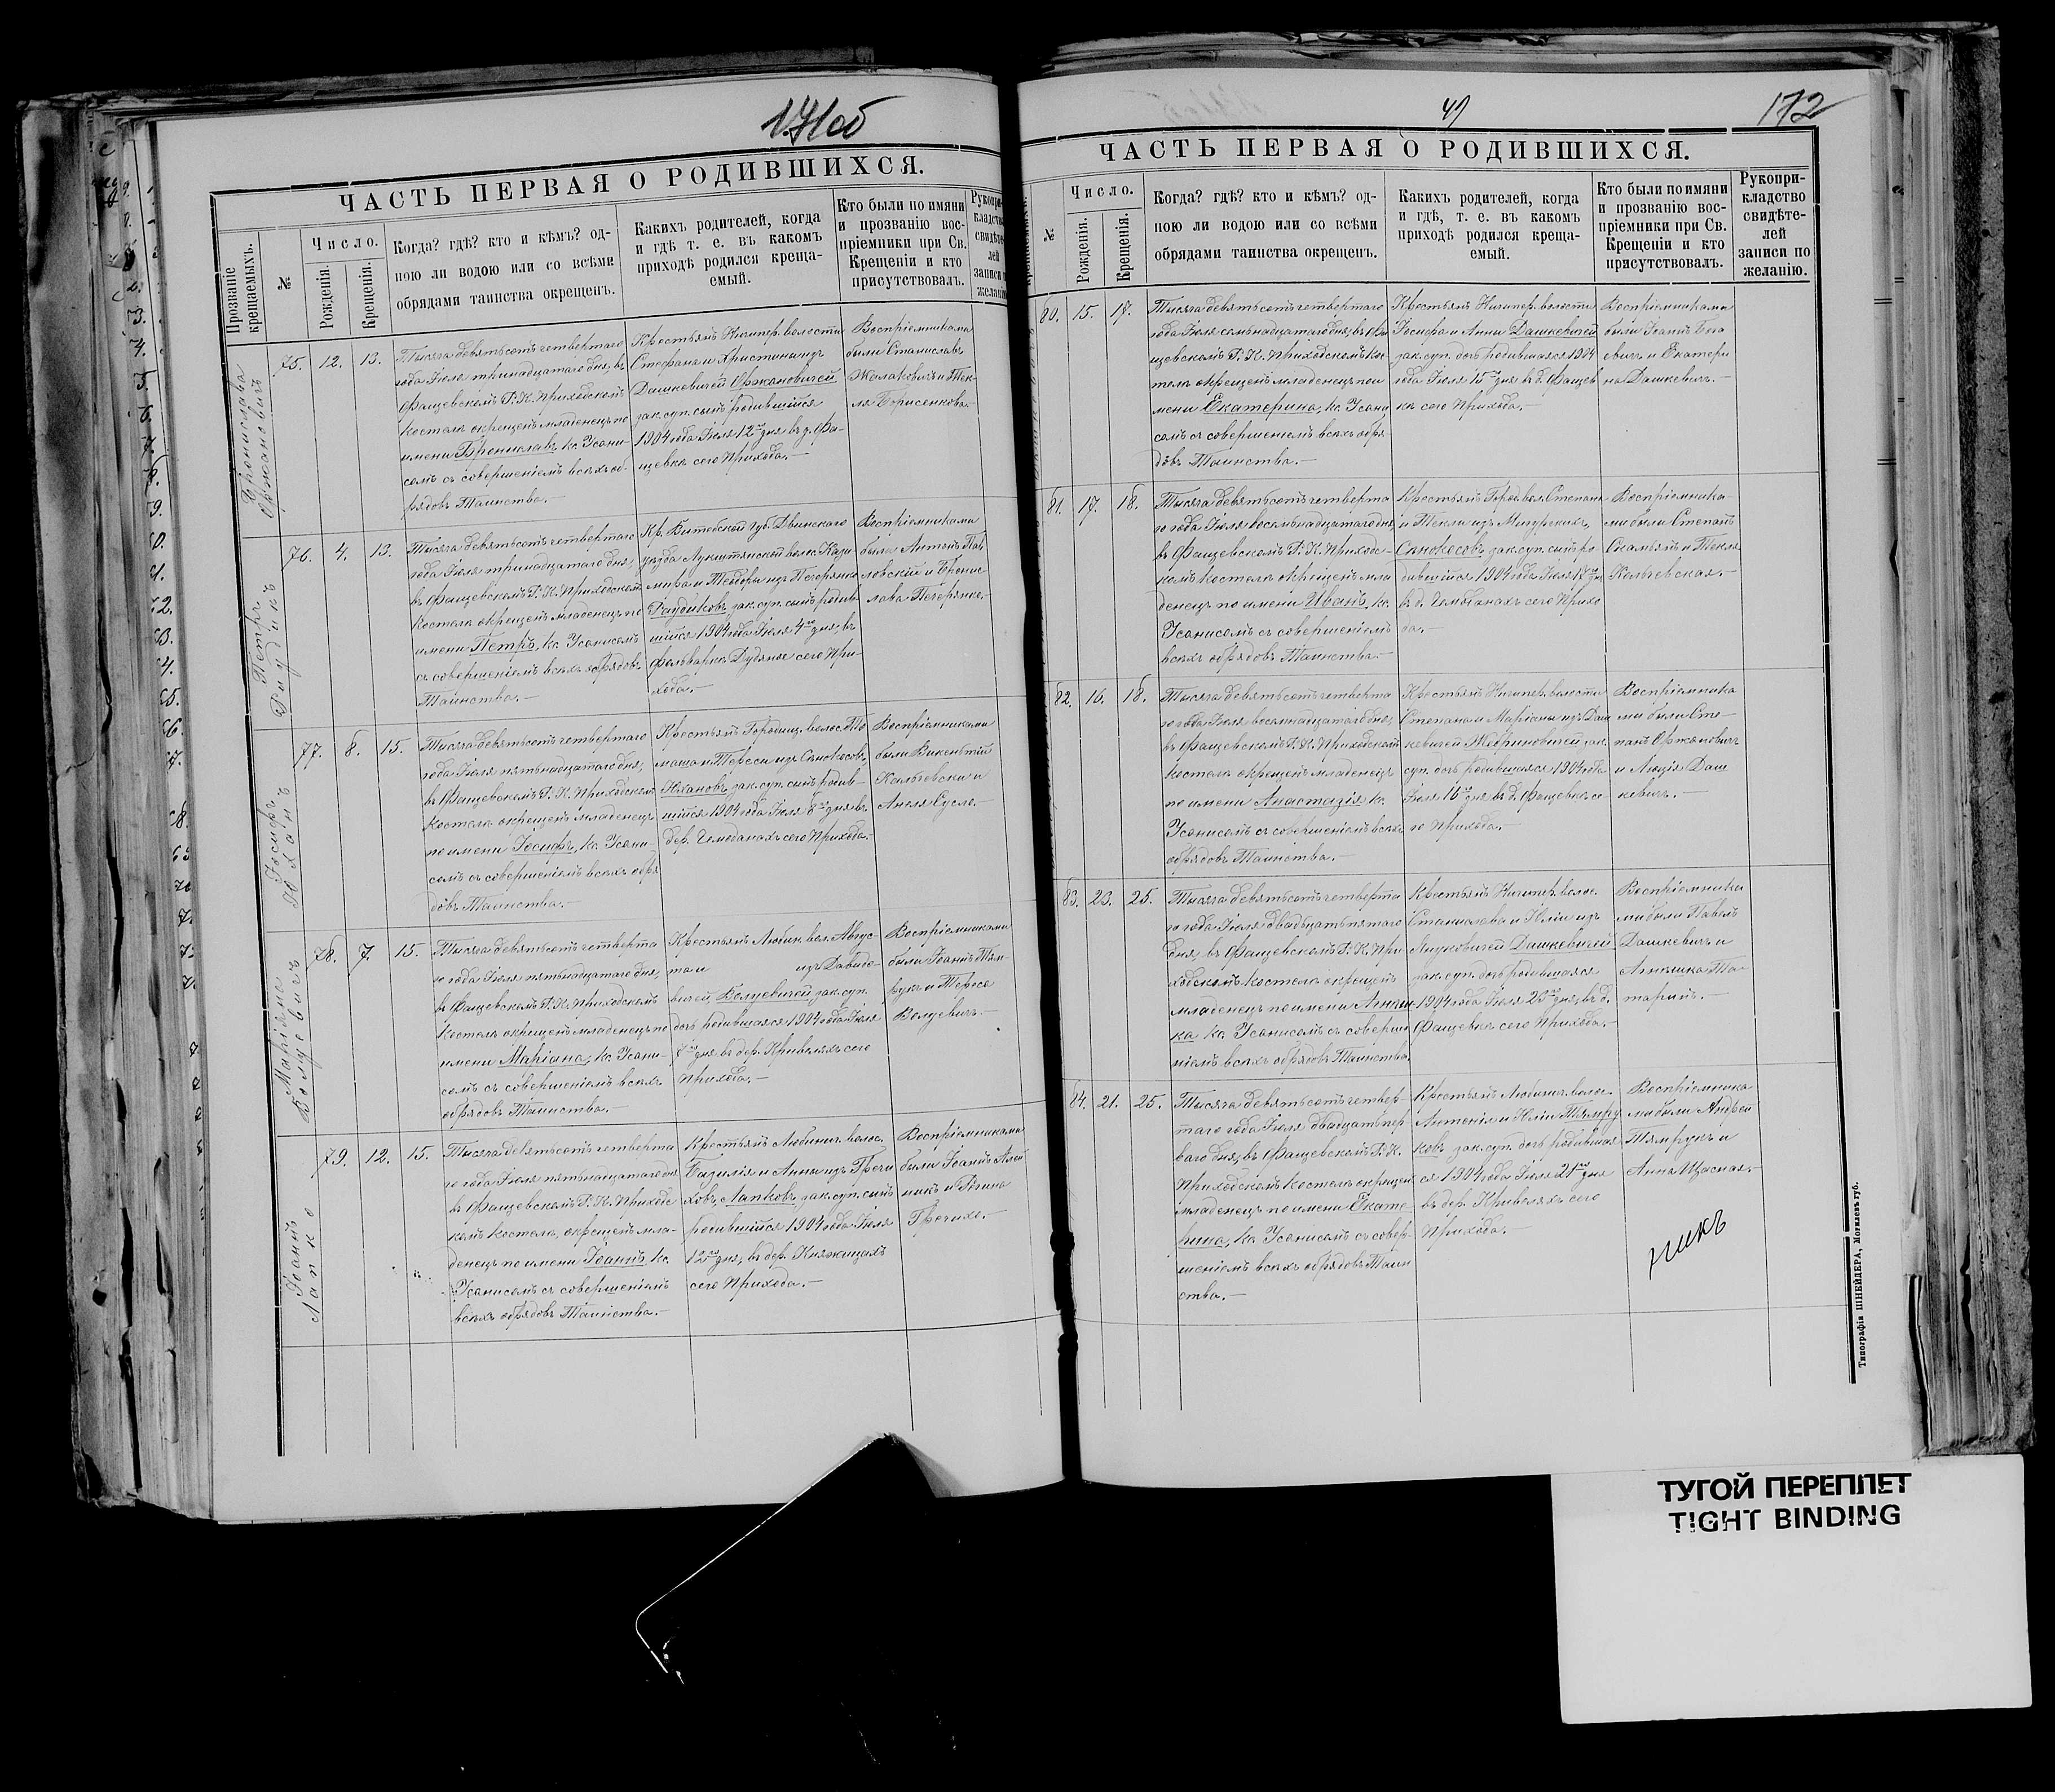 171об
ЧАСТЬ ПЕРВАЯ О РОДИВШИХСЯ.
Прозваніе крещаемыхъ.
№
Число.
Рожденія.
Крещенія.
Когда? гдѣ? кто и кѣмъ? од-
ною ли водою или со всѣми
обрядами таинства окрещенъ.
Какихъ родителей, когда
и гдѣ т. е. въ какомъ
приходѣ родился креща-
емый.
Кто были по имяни
и прозванію вос-
пріемники при Св.
Крещеніи и кто
присутствовалъ.
Бронислава
Оржановичъ
75. 12. 13.
Тысяча девятьсотъ четвертаго
года Іюля тринадцатаго дня, въ
Фащевскомъ Р. К. Приходскомъ
костелѣ окрещенъ младенецъ по
имени Брониславъ, кс. Усани-
сомъ съ совершеніемъ всѣхъ об-
рядовъ Таинства.—
Крестьянъ Ничипер. волости
Стефана и Христины изъ
Дашкевичей Оржановичей
зак. суп. сынъ родившійся
1904 года Іюля 12го дня въ д. Фа-
щевкѣ сего Прихода.—
Воспріемниками
были Станиславъ
и Тек-
ля Борисенкова.
Петръ
76. 4. 13.
Тысяча девятьсотъ четвертаго
года Іюля тринадцатаго дня,
въ Фащевскомъ Р. К. Приходскомъ
костелѣ окрещенъ младенецъ по
имени Петръ, кс. Усанисомъ
съ совершеніемъ всѣхъ обрядовъ
Таинства.—
Кр. Витебской губ. Двинскаго
уѣзда волос. Кази-
мира и Теодоры изъ
зак. суп. сынъ родив-
шійся 1904 года Іюля 4го дня, въ
фольваркѣ Дудянке сего При-
хода.—
Воспріемниками
были Антонъ Пав
ловскій и Брони
слава
Іосифъ
Юханъ
77. 8. 15.
Тысяча девятьсотъ четвертаго
года Іюля пятьнадцатаго дня,
въ Фащевскомъ Р. К. Приходскомъ
костелѣ окрещенъ младенецъ
по имени Іосифъ, кс. Усани-
сомъ съ совершеніемъ всѣхъ обря
довъ Таинства.—
Крестьянъ Городищ. волос. То
маша и Тересы изъ Сѣнокосовъ
Юхановъ зак. суп. сынъ родив-
шійся 1904 года Іюля 8го дня въ
дер. Чемоданахъ сего Прихода.—
Воспріемниками
были Викентій
Кольчевски и
Анеля Сусло.—
Маріяна
Волуевичъ
78. 7. 15.
Тысяча девятьсотъ четверта
го года Іюля пятьнадцатаго дня,
въ Фащевскомъ Р. К. Приходскомъ
костелѣ окрещенъ младенецъ по
имени Маріана, кс. Усани-
сомъ съ совершеніемъ всѣхъ
обрядовъ Таинства.—
Крестьянъ Любин. вол. Авгус-
та и изъ Давидо-
вичей, Волуевичей зак. суп.
дочь родившаяся 1904 года Іюля
7го дня въ дер. Кривеляхъ сего
Прихода.—
Воспріемниками
были Іоаннъ Тям-
рукъ и Тереса
Волуевичъ.—
Іоаннъ
Лапко
79. 12. 15.
Тысяча девятьсотъ четверта
го года Іюля пятьнадцатаго дня
въ Фащевскомъ Р. К. Приходс
комъ костелѣ, окрещенъ мла-
денецъ по имени Іоаннъ, кс.
Усанисомъ съ совершеніемъ
всѣхъ обрядовъ Таинства.—
Крестьянъ Любинич. волос.
Базилія и Анны изъ Гречи
ховъ, Лапковъ зак. суп. сынъ
родившійся 1904 года Іюля
12го дня, въ дер. Княжицахъ
сего Прихода.—
Воспріемниками
были Іоаннъ Алей
никъ и Регина
Гречихо.—
41
172
ЧАСТЬ ПЕРВАЯ О РОДИВШИХСЯ.
№
Число.
Рожденія.
Крещенія.
Когда? гдѣ? кто и кѣмъ? од-
ною ли водою или со всѣми
обрядами таинства окрещенъ.
Какихъ родителей, когда
и гдѣ, т. е. въ какомъ
приходѣ родился креща-
емый.
Кто были по имяни
и прозванію вос-
пріемники при Св.
Крещеніи и кто
присутствовалъ.
Рукопри-
кладство
свидѣте-
лей
записи по
желанію.
80. 15. 17.
Тысяча девятьсотъ четвертаго
года Іюля семьнадцатаго дня, въ Фа
щевскомъ Р. К. Приходскомъ кос
телѣ окрещенъ младенецъ по и
мени Екатерина, кс. Усани
сомъ съ совершеніемъ всѣхъ обря-
довъ Таинства.—
Крестьянъ Ничипер. волости
Іосифа и Анны Дашкевичей
зак. суп. дочь родившаяся 1904
года Іюля 15го дня въ д. Фащев
кѣ сего Прихода.—
Воспріемниками
были Іоаннъ
евичъ и Екатери
на Дашкевичъ.—
81. 17. 18.
Тысяча девятьсотъ четверта
го года Іюля восемьнадцатаго дня
въ Фащевскомъ Р. К. Приходс-
комъ костелѣ окрещенъ мла
денецъ по имени Иванъ, кс.
Усанисомъ съ совершеніемъ
всѣхъ обрядовъ Таинства.—
Крестьянъ Город. вол. Степана
и Текли изъ Мигурскихъ,
Сѣнокосовъ зак. суп. сынъ ро
дившійся 1904 года Іюля 17го дня
въ д. Чемоданахъ сего Прихо
да.—
Воспріемника-
ми были Степанъ
и Текля
Кольчевская.—
82. 16. 18.
Тысяча девятьсотъ четверта
го года Іюля восемнадцатаго дня,
въ Фащевскомъ Р. К. Приходскомъ
костелѣ окрещенъ младенецъ
по имени Анастазія кс.
Усанисомъ съ совершеніемъ всѣхъ
обрядовъ Таинства.—
Крестьянъ Ничипер. волости
Степана и Маріаны изъ Даш
кевичей зак.
суп. дочь родившаяся 1904 года
Іюля 16го дня въ д. Фащевкѣ се-
го Прихода.—
Воспріемника
ми были Сте-
панъ Оржановичъ
и Люція Даш
кевичъ.—
83. 23. 25.
Тысяча девятьсотъ четверта
го года Іюля двадцать пятаго
дня, въ Фащевскомъ Р. К. При
ходскомъ костелѣ окрещенъ
младенецъ по имени Агнеш-
ка кс. Усанисомъ съ соверше
ніемъ всѣхъ обрядовъ Таинства.
Крестьянъ Ничипер. волос.
Станислава и Юліи изъ
Дашкевичей
зак. суп. дочь родившаяся
1904 года Іюля 23го дня, въ д.
Фащевкѣ сего Прихода.—
Воспріемника
ми были Павелъ
Дашкевичъ и
Агнешка Та-
таринъ.—
84. 21. 25.
Тысяча девятьсотъ четвер-
таго года Іюля двадцать пер
ваго дня, въ Фащевскомъ Р. К.
Приходскомъ костелѣ окрещенъ
младенецъ по имени Екате-
рина, кс. Усанисомъ съ совер-
шеніемъ всѣхъ обрядовъ Таин
ства.—
Крестьянъ Любинич. волос.
Антонія и Юліи Тямру
ковъ зак. суп. дочь родившая
ся 1904 года Іюля 21го дня
въ дер. Кривеляхъ сего
Прихода.—
Воспріемника
ми были Андрей
Тямрукъ и
Анна Щасная.—
никъ
Типографія ШНЕЙДЕРА, Могилевъ губ.
ТУГОЙ ПЕРЕПЛЕТ
TIGHT BINDING